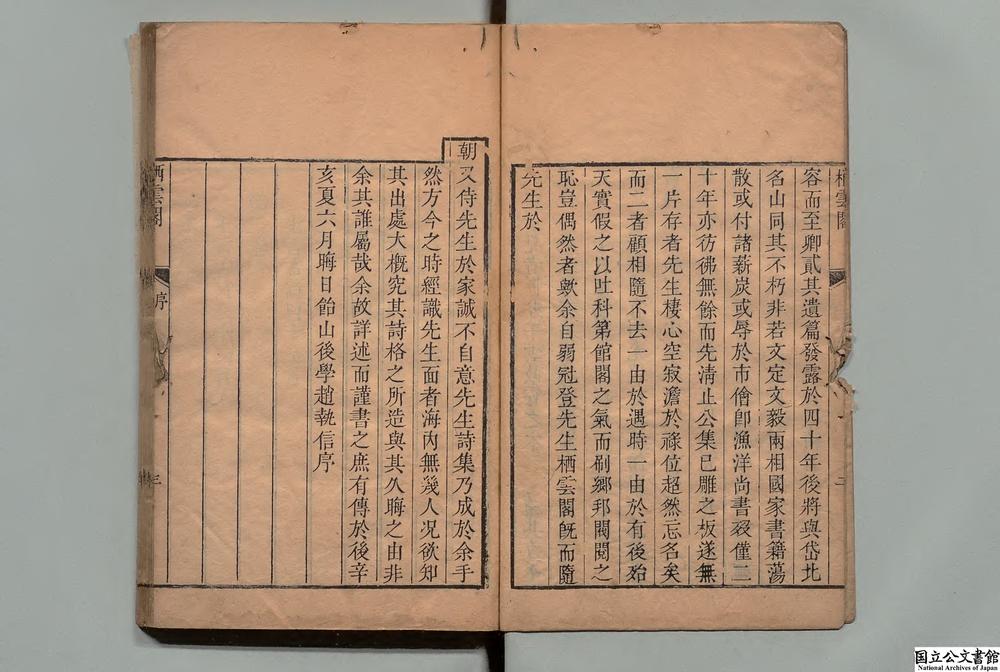 栖雲閣
容而至卿貳其遺篇發露於四十年後將與岱北
名山同其不朽非若文定文毅兩相國家書籍蕩
散或付諸薪炭或辱於市儈卽漁洋尚書歿僅二
十年亦彷彿無餘而先清止公集已雕之板遂無
一片存者先生棲心空寂澹於祿位超然忘名矣
而二者顧相隨不去一由於遇時一由於有後殆
天實假之以吐科第館閣之氣而刷鄉邦閥閱之
恥豈偶然者歟余自弱冠登先生栖雲閣旣而隨
先生於
朝又侍先生於家誠不自意先生詩集乃成於余手
然方今之時經識先生面者海內無幾人况欲知
其出處大槪究其詩格之所造與其久晦之由非
余其誰屬哉余故詳述而謹書之庶有傳於後辛
亥夏六月晦日飴山後學趙執信序
栖雲閣
序
三
国立公文書館
National Archives of Japan